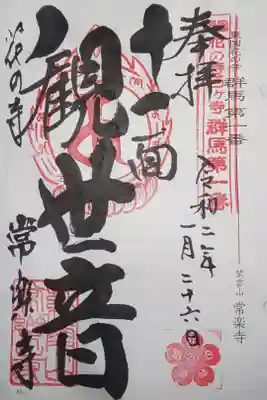 東国花の寺
群馬第一番
奉拝
令和二年
一月二十六日
十一面
観世音
花の寺
常楽寺
紫雲山 常楽寺